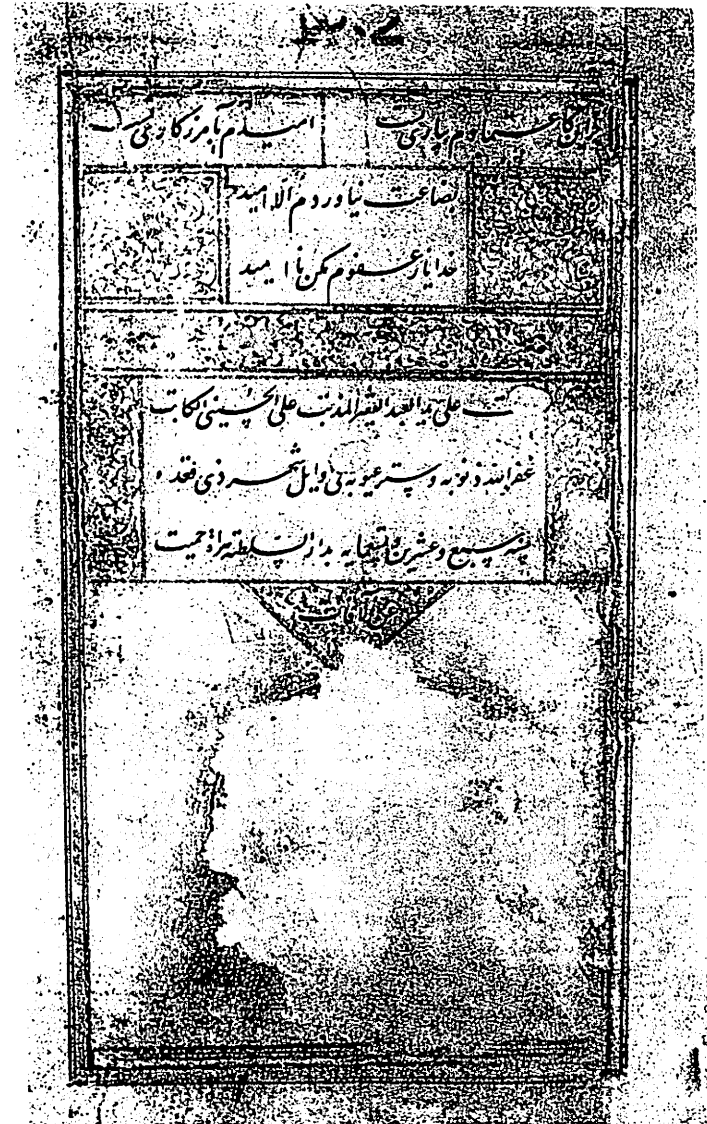 براین کاعتمادم بیاری تست امیدم بآمرزکاری تست
بضاعت نیاوردم الا امید
خدایا ز عفوم مکن نا امید
تمت علی ید العبد الفقیر المذنب علی الحسینی الکاتب
غفر الله ذنوبه و ستر عیوبه فی اوایل شهر ذی قعده
سنه سبع و عشرین و تسعمایه بدار السلطنه هراة حمیت
عن الآفات